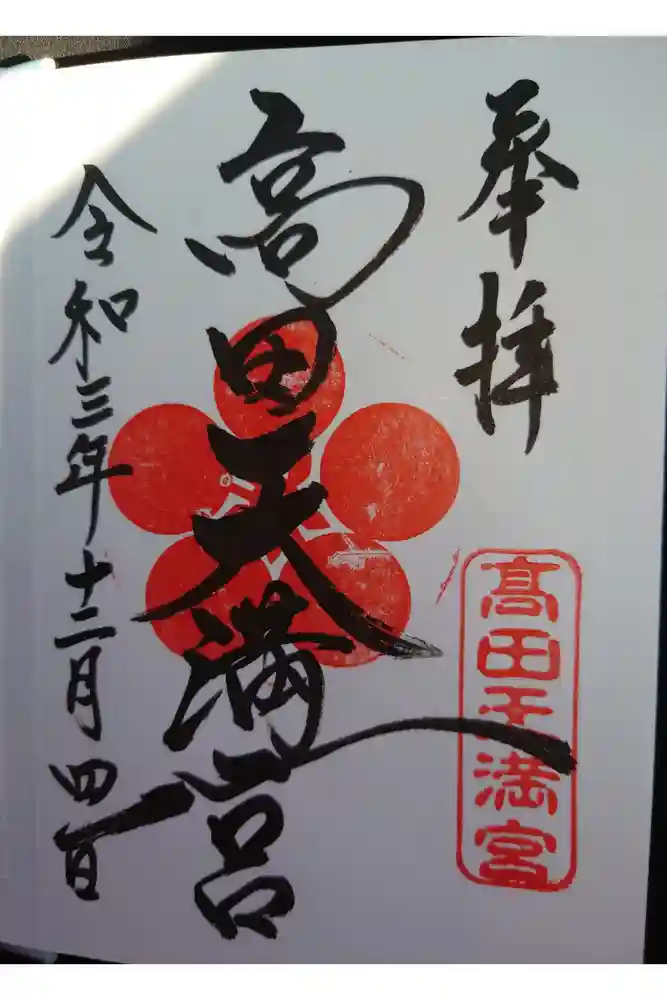 奉拝
髙田天満宮
高田天満宮
令和三年十二月四日